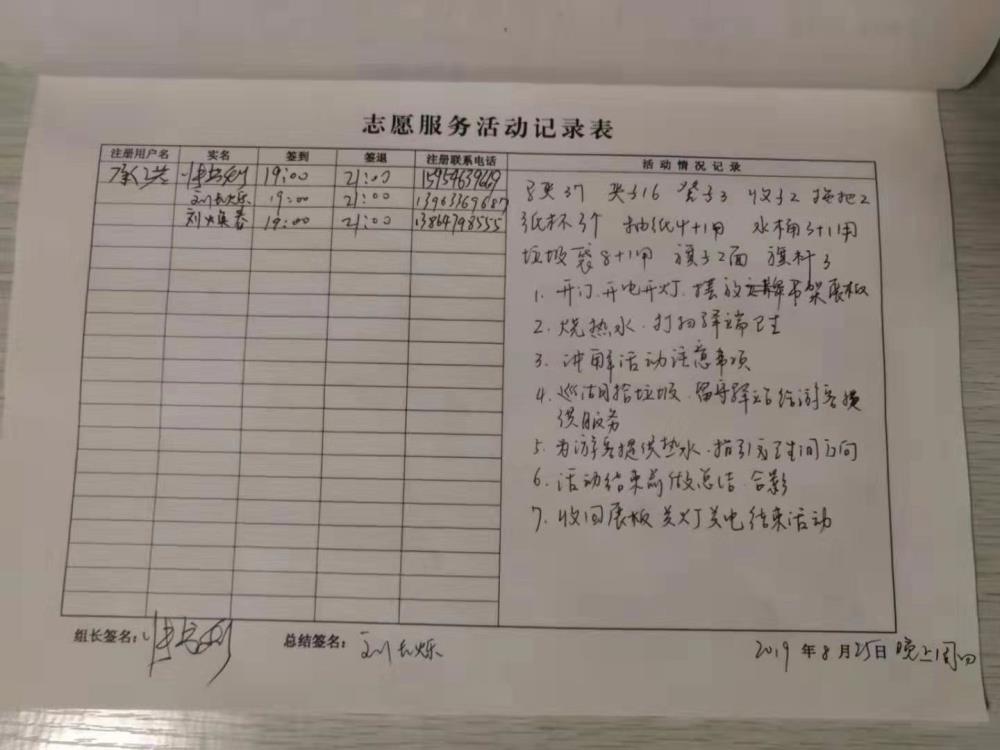 志愿服务活动记录表
注册用户名 实名 签到 签退 注册联系电话 活动情况记录
19:00 21:00 15954639669
刘长烁 19:00 21:00 13963369687
刘焕春 19:00 21:00 13864798555
马夹37 夹子16 凳子3 收子2 拖把2
纸杯3个 抽纸4+1用 水桶3+1用
垃圾袋8+1用 旗子2面 旗杆3
1. 开门.开电开灯.摆放 吊架展板
2. 烧热水.打扫驿站卫生
3. 讲解活动注意事项
4. 巡湖捡垃圾.留守驿站给游客提
供服务
5. 为游客提供热水.指引 卫生间方向
6. 活动结束前做总结.合影
7. 收回展板 关灯关电结束活动
组长签名: 总结签名: 刘长烁 2019年8月25日 晚上周四